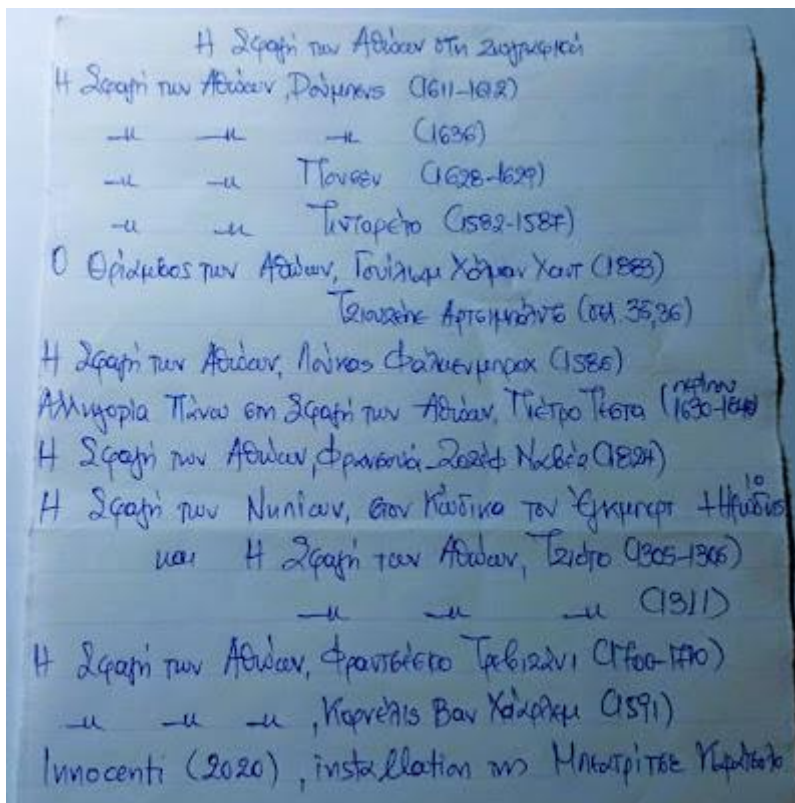 Η Σφαγή των Αθώων στη ζωγραφική
Η Σφαγή των Αθώων, Ρούμπενς (1611-1612)
–〃 –〃 –〃 (1636)
–〃 –〃 Πουσέν (1628-1629)
–〃 –〃 Τιντορέτο (1582-1587)
Ο Θρίαμβος των Αθώων, Γουίλιαμ Χόλμαν Χαντ (1883)
Τζιουζέπε Αρτσιμπόλντο (σελ. 35,36)
Η Σφαγή των Αθώων, Λούκας Φάλκενμπροχ (1586)
Αλληγορία Πάνω στη Σφαγή των Αθώων, Πιέτρο Τέστα (περίπου 1630-1640)
Η Σφαγή των Αθώων, Φρανσουά-Ζοζέφ Ναβέζ (1824)
Η Σφαγή των Νηπίων, στον Κώδικα του Έγκμπερτ + Ηρώδης 10
και Η Σφαγή των Αθώων, Τζιότο (1305-1306)
–〃 –〃 –〃 (1311)
Η Σφαγή των Αθώων, Φραντσέσκο Τρεβιζάνι (1700-1710)
–〃 –〃 –〃, Κορνέλις Βαν Χάαρλεμ (1591)
Innocenti (2020), installation της Μπεατρίτσε